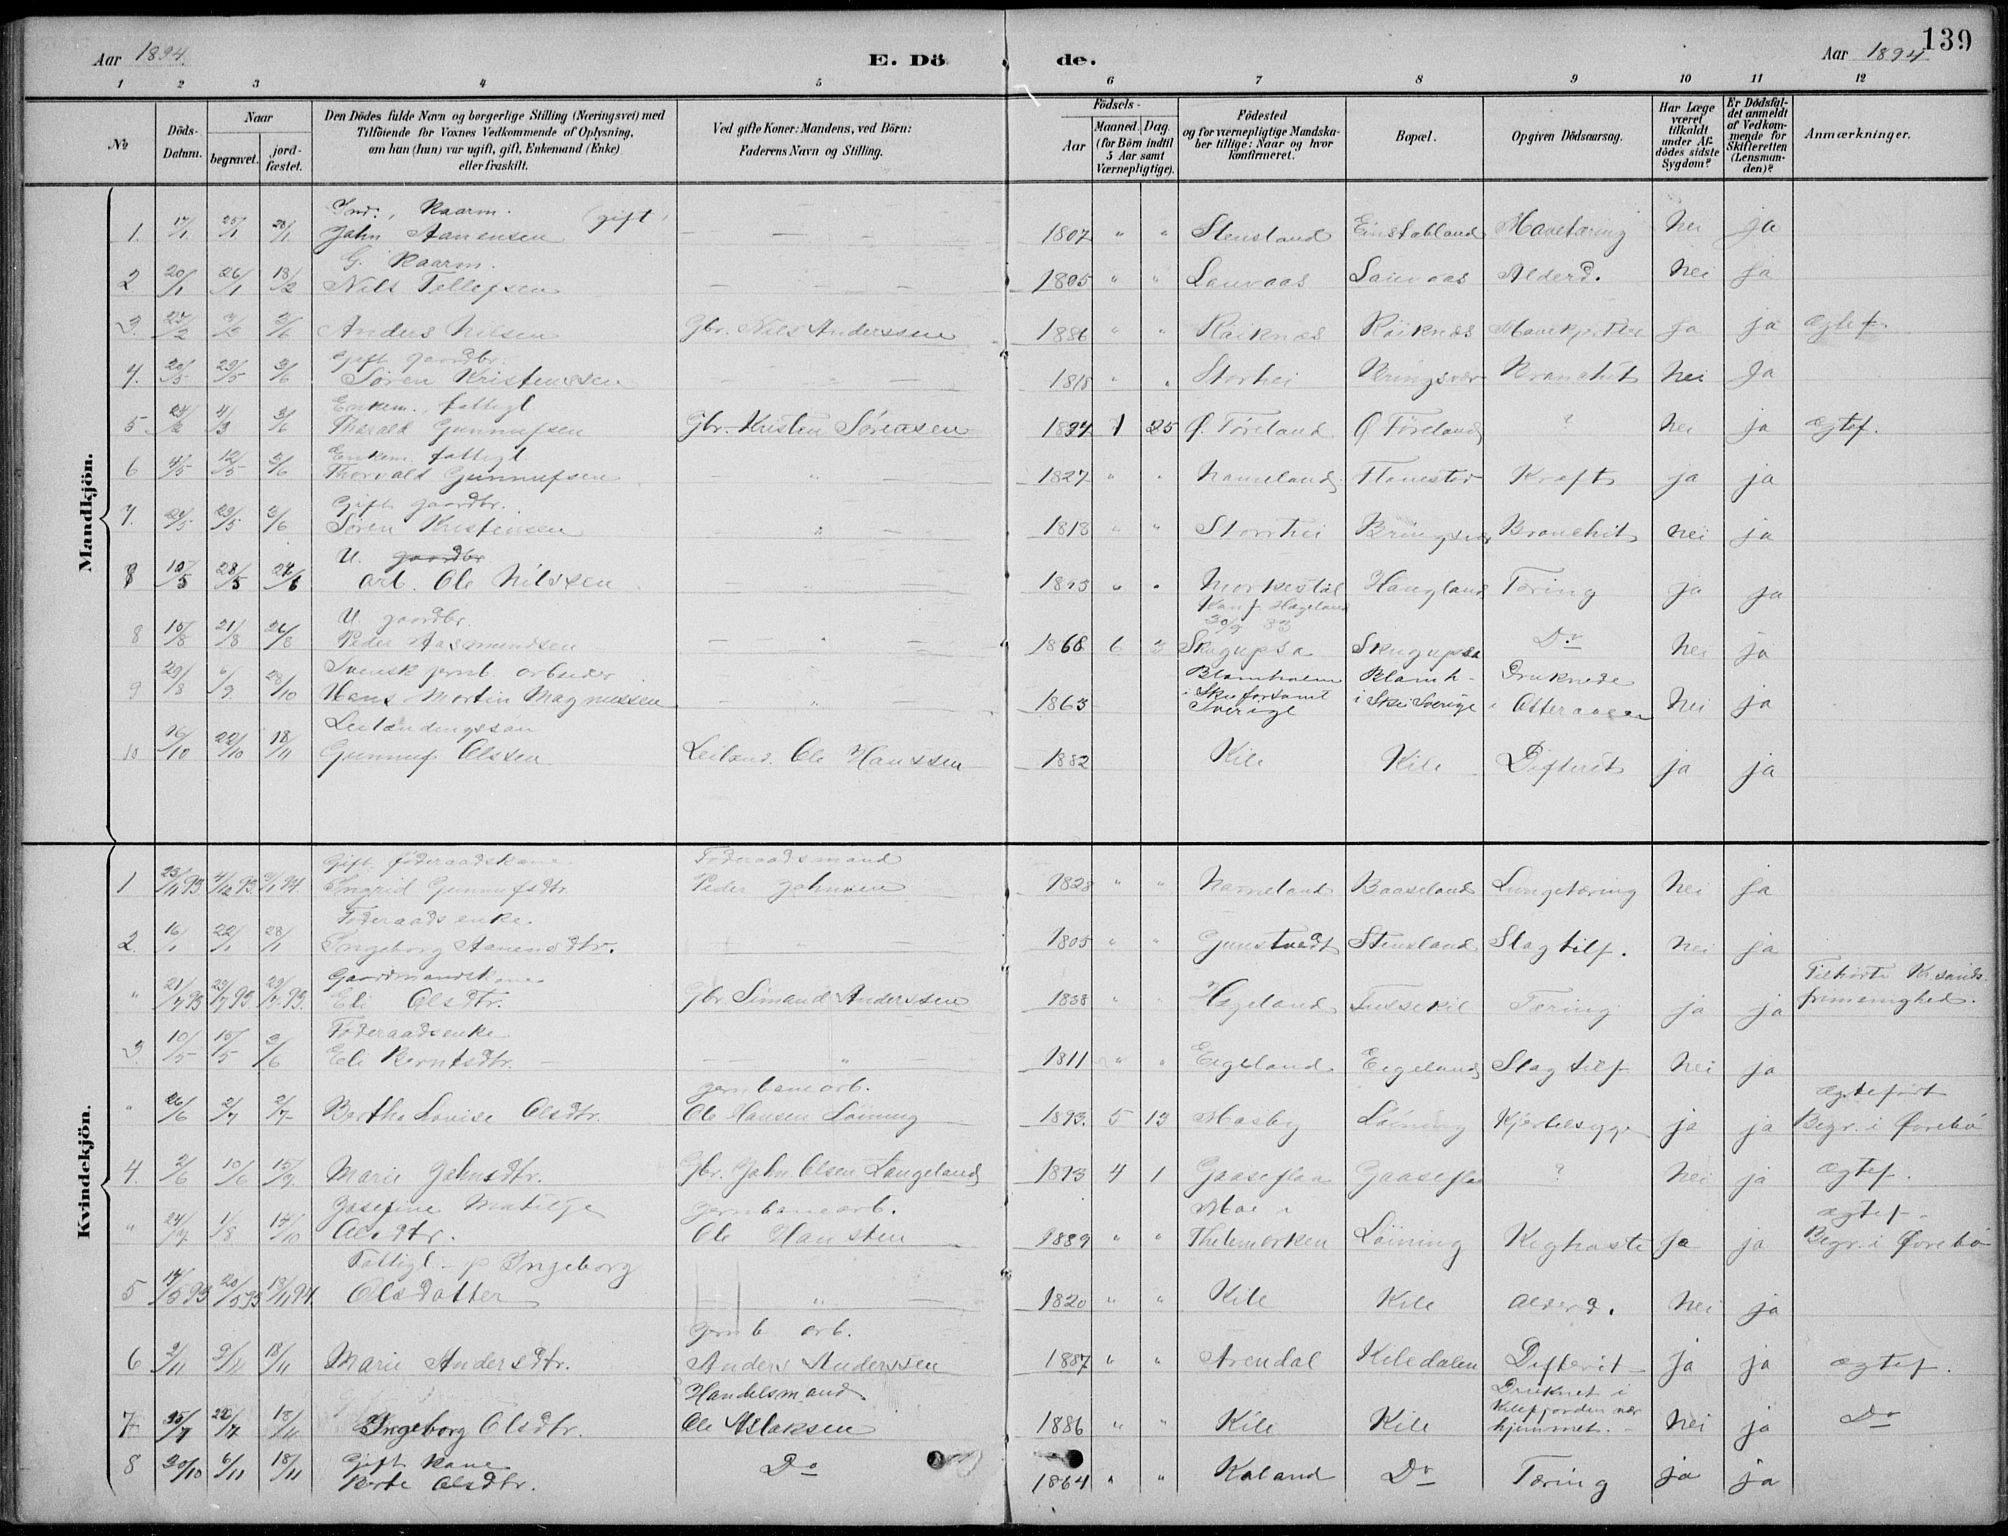 Aar 1894. E. Dö de. Aar 1894 139
1 2 3 4 5 6 7 8 9 10 11 12
No
Döds-Datum.
Naar
begravet.
jord-fæstet.
Den Dödes fulde Navn og borgerlige Stilling (Næringsvei) med
Tilföiende for Voxnes Vedkommende af Oplysning,
om han (hun) var ugift, gift, Enkemand (Enke)
eller fraskilt.
Ved gifte Koner: Mandens, ved Börn:
Faderens Navn og Stilling.
Födsels-
Aar
Maaned. Dag.
(for Börn indtil
5 Aar samt
Værnepligtige).
Födested
og for værnepligtige Mandska-
ber tillige: Naar og hvor
konfirmeret.
Bopæl.
Opgiven Dödsaarsag.
Har Læge
været
tilkaldt
under Af-
dödes sidste
Sygdom?
Er Dödsfal-
det anmeldt
af Vedkom-
mende for
Skifteretten
(Lensman-
den)?
Anmærkninger.
Mandkjön.
Ind., Kaarm. (gift)
1. 17/1 25/1 28/1 John Aanensen 1807 " " Stensland Einstabland Mavetæring nei ja
G. Kaarm.
2 20/1 26/1 18/2 Nils Tellefsen 1805 " " Lauvaas Lauvaas Alderd. nei ja
3. Anders Nilsen Gbr. Nils Anderssen 1886 " " Røiknæs Røiknæs ja ja ægtef.
Gift gaardbr.
4. 20/5 29/5 3/6 Søren Kristenssen 1818 " " Storhei Kringsvær Bronchit nei ja
Enkem., fattigl.
5 24/2 4/3 3/6 Tharald Gunnufsen Gbr. Kristen Sörensen 1894 1 25 Ø. Føreland Ø. Føreland ? nei ja ægtef.
Enkem. fattigl
6 4/5 12/5 3/6 Thorvald Gunnufsen " 1827 " " Homeland Flonestad Kræft ja ja
Gift gaardbr.
7. 24/5 29/5 3/6 Søren Kristensen " 1818 " " Storrhei Bringsvær Bronchit nei ja
U. gaardbr
8 10/5 28/5 24/6 arb. Ole Nilssen " " Morkestøl Haugland Tæring ja ja
Konf. Hægeland
30/9 83
U. gaardbr.
8 15/8 21/8 26/8 Peder Aasmundsen " 1868 6 3 Skugupsa Skugupsa Do nei ja
Svensk jernb. arbeider
9 29/8 6/9 28/10 Hans Martin Magnussen " 1863 Blomholm Blomh- Druknede nei ja
i Skee forsaml i Ske Sverige i Otteraaen
Sverige
Leilændingssøn
10 16/10 22/10 18/11 Gunnuf Olssen Leilænd. Ole Hanssen 1882 Kile Kile Difterit ja ja
Kvindekjön.
Gift føderaadskone Føderaadsmand
1 23/11 93 4/12 93 2/1 94. Ingrid Gunnufsdtr. Peder Johnsen 1828 " " Homeland Baaseland Lungetæring nei ja
Føderaadsenke.
2. 16/1 22/1 28/1 Ingeborg Aanensdtr. " 1805 " " Gunstvedt Stensland Slagtilf. nei ja
Gaardmandskone Tilhørte Kr.sands
" 21/7 93 29/7 93 29/7 93. Eli Olsdtr. Gbr Simand Anderssen 1838 " " Hægeland Fussekil Tæring ja ja frimenighed.
Føderaadsenke
3. 10/5 15/5 3/6 Eli Berntsdtr. " 1811 " " Eigeland Eigeland Slagtilf nei ja
jernbanearb. ægtefødt
" 26/6 2/7 2/7 Bertha Lovise Olsdtr. Ole Hansen Løining 1893. 5 13 Mosby Løining Kjertelsyge ja ja Begr. i Øvrebø
4. 2/6 10/6 15/7 Marie Johnsdtr. Gbr. John Olsen Langeland 1893 4 1 Gaaseflaa Gaaseflaa ? nei ja ægtef.
Josefine Matilje jernbanearb. Moe i ægtef.
" 24/7 1/8 14/10 Olsdtr. Ole Hansten 1889 " " Thelemarken Løining Kighoste ja ja Begr. i Øvrebø
Fattigl. p Ingeborg
5 14/5 93 20/5 93 18/11 94. Olsdatter " 1820 " " Kile Kile alderd. nei ja
jernb arb.
6 2/11 9/11 18/11 Marie Andersdtr. Anders Anderssen 1887 " " Arendal Kiledalen Difterit ja ja ægtef.
Handelsmand Druknet i
7 15/7 22/7 18/11 Ingeborg Olsdtr. Ole Aslaksen 1886 " " Kile Kile Kilefjorden nær nei ja Do
hjemmet.
Gift kone
8 30/10 6/11 18/11 Berte Olsdtr. Do 1864 " " Koland Do Tæring ja ja